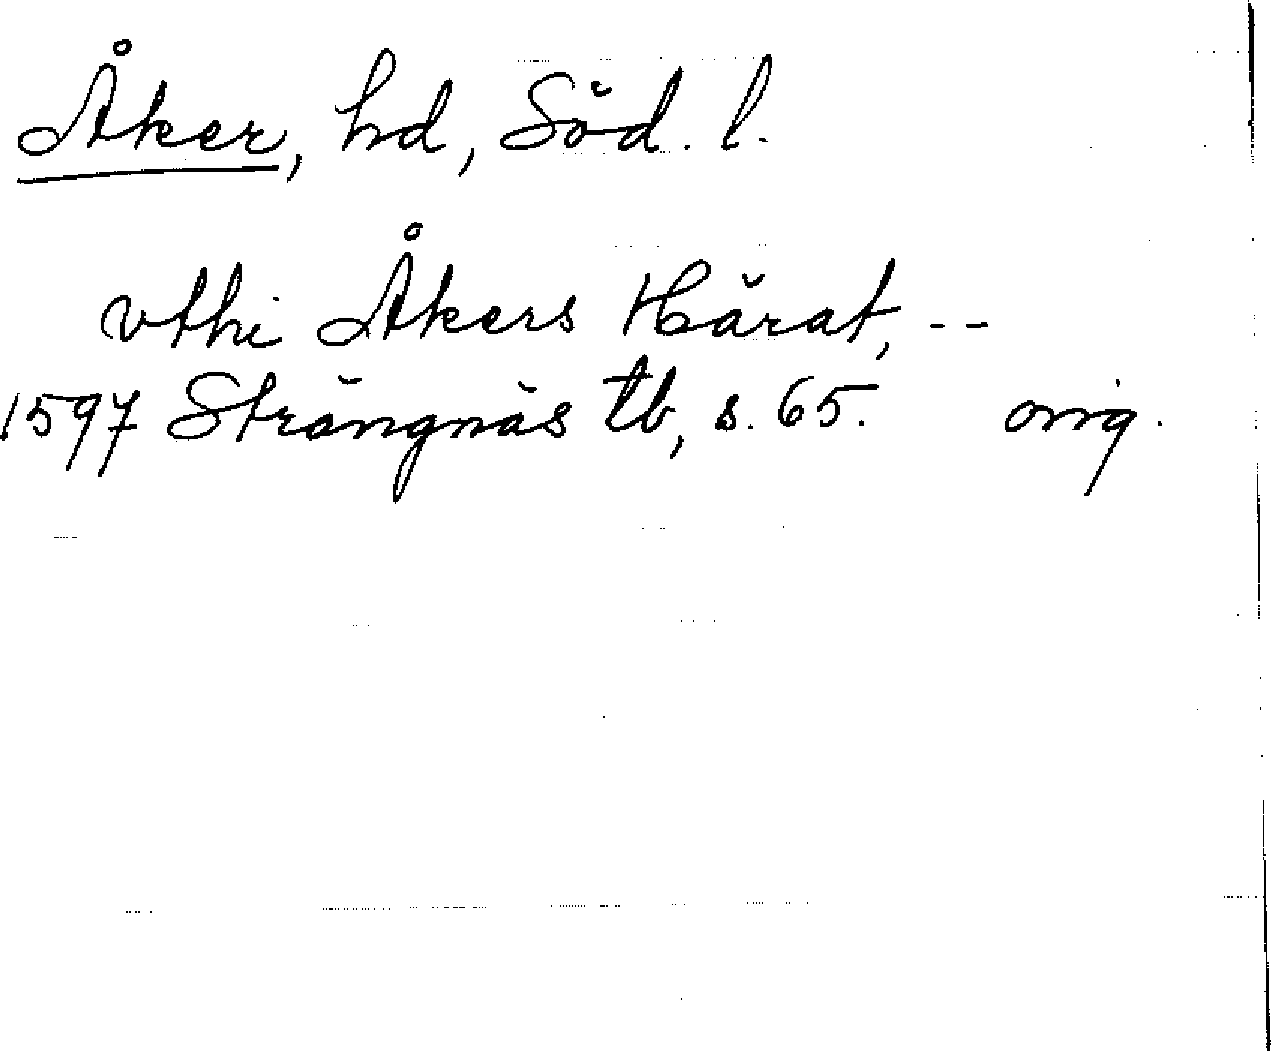 Åker, hd, Söd. l.
vthi Åkers Härat, --
1597 Strängnäs tb, s. 65. orig.